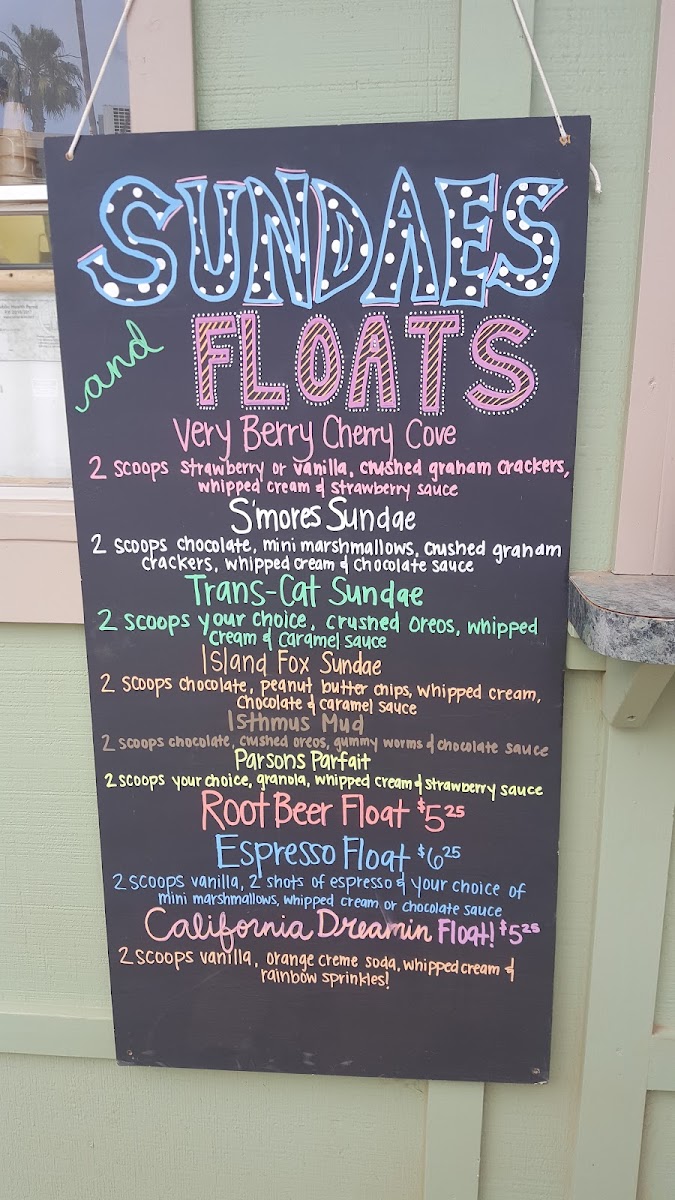 SUNDAES
and FLOATS
Very Berry Cherry Cove
2 scoops strawberry or vanilla, crushed graham crackers,
whipped cream & strawberry sauce
S'mores Sundae
2 scoops chocolate, mini marshmallows, crushed graham
crackers, whipped cream & chocolate sauce
Trans-Cat Sundae
2 scoops your choice, crushed oreos, whipped
cream & caramel sauce
Island Fox Sundae
2 scoops chocolate, peanut butter chips, whipped cream,
chocolate & caramel sauce
Isthmus Mud
2 scoops chocolate, crushed oreos, gummy worms & chocolate sauce
Parsons Parfait
2 scoops your choice, granola, whipped cream & strawberry sauce
Root Beer Float $5 25
Espresso Float $6 25
2 scoops vanilla, 2 shots of espresso & your choice of
mini marshmallows, whipped cream or chocolate sauce
California Dreamin Float! $5 25
2 scoops vanilla, orange creme soda, whipped cream &
rainbow sprinkles!